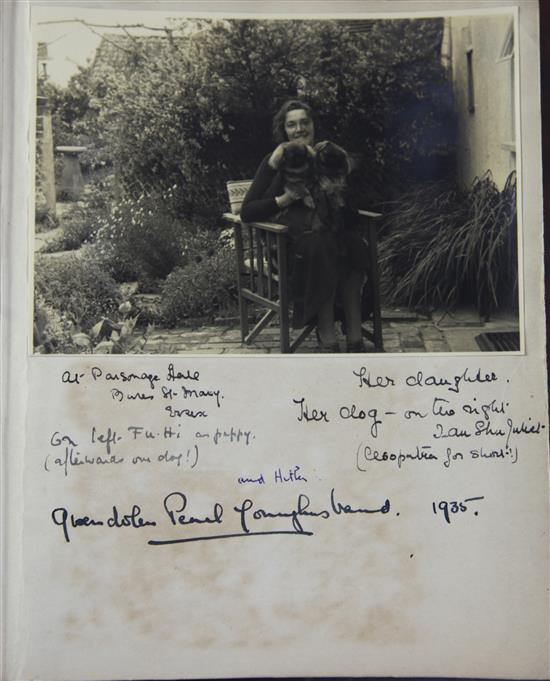 At Parsonage Hall
Bures St. Mary.
Essex
On left. Fu-Hi as puppy.
(afterwards our dog!)
Her daughter.
Her dog - on the right.
Tau Shu Juliet.
(Cleopatra for short!)
and Hitler
Gwendolen Pearl Younghusband. 1935.